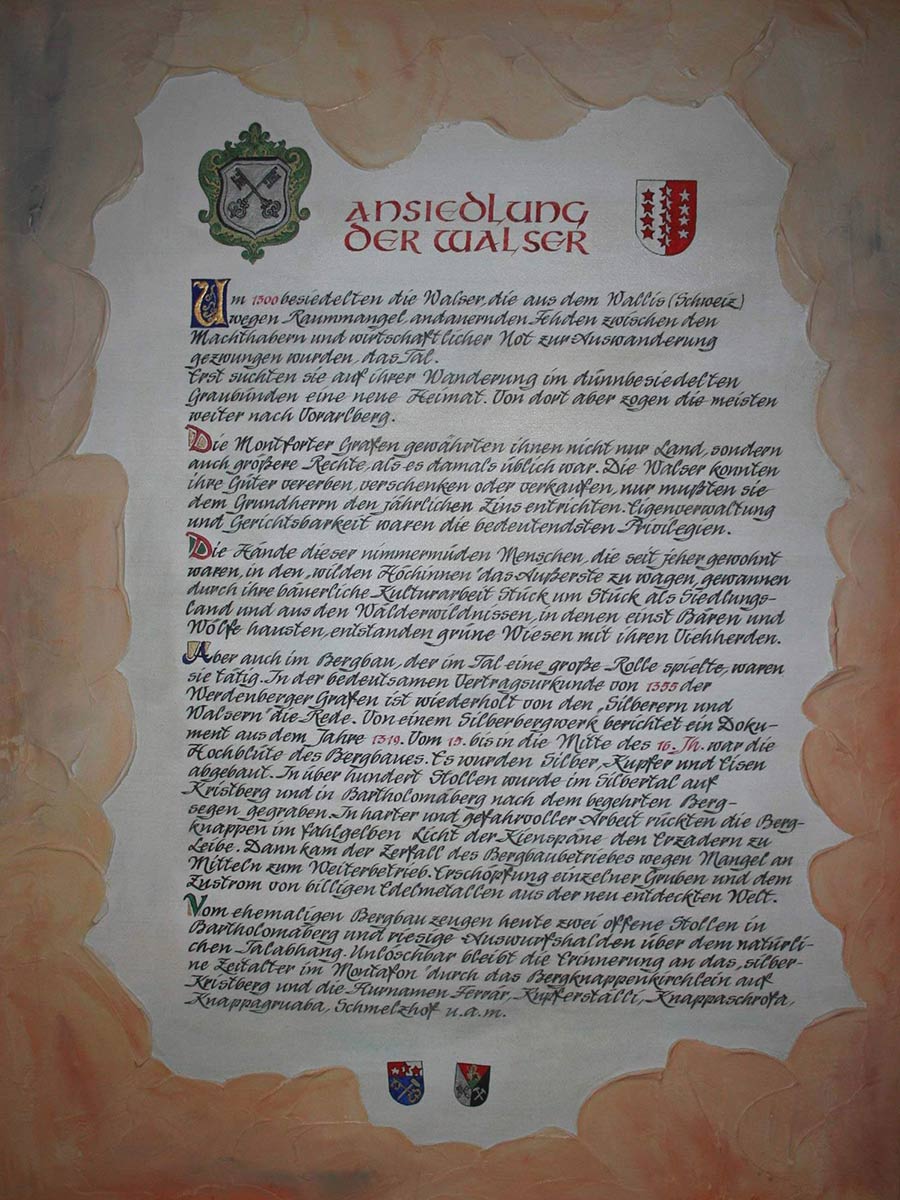 ANSIEDLUNG
DER WALSER
Um 1300 besiedelten die Walser, die aus dem Wallis (Schweiz)
wegen Raummangel, andauernden Fehden zwischen den
Machthabern und wirtschaftlicher Not zur Auswanderung
gezwungen wurden, das Tal.
Erst suchten sie auf ihrer Wanderung im dünnbesiedelten
Graubünden eine neue Heimat. Von dort aber zogen die meisten
weiter nach Vorarlberg.
Die Montforter Grafen gewährten ihnen nicht nur Land, sondern
auch größere Rechte, als es damals üblich war. Die Walser konnten
ihre Güter vererben, verschenken oder verkaufen, nur mußten sie
dem Grundherrn den jährlichen Zins entrichten. Eigenverwaltung
und Gerichtsbarkeit waren die bedeutendsten Privilegien.
Die Hände dieser nimmermüden Menschen, die seit jeher gewohnt
waren, in den „wilden Höchinnen" das Äußerste zu wagen, gewannen
durch ihre bäuerliche Kulturarbeit Stück um Stück als Siedlungs-
Land und aus den Wälderwildnissen, in denen einst Bären und
Wölfe hausten, entstanden grüne Wiesen mit ihren Viehherden.
Aber auch im Bergbau, der im Tal eine große Rolle spielte, waren
sie tätig. In der bedeutsamen Vertragsurkunde von 1355 der
Werdenberger Grafen ist wiederholt von den „Silberern und
Walsern" die Rede. Von einem Silberbergwerk berichtet ein Doku-
ment aus dem Jahre 1319. Vom 15. bis in die Mitte des 16. Jh. war die
Hochblüte des Bergbaues. Es wurden Silber, Kupfer und Eisen
abgebaut. In über hundert Stollen wurde im Silbertal auf
Kristberg und in Bartholomäberg nach dem begehrten Berg-
segen gegraben. In harter und gefahrvoller Arbeit rückten die Berg-
knappen im fahlgelben Licht der Kienspäne den Erzadern zu
Leibe. Dann kam der Zerfall des Bergbaubetriebes wegen Mangel an
Mitteln zum Weiterbetrieb. Erschöpfung einzelner Gruben und dem
Zustrom von billigen Edelmetallen aus der neu entdeckten Welt.
Vom ehemaligen Bergbau zeugen heute zwei offene Stollen in
Bartholomäberg und riesige Auswurfshalden über dem natürli-
chen Talabhang. Unlöschbar bleibt die Erinnerung an das „silber-
ne Zeitalter im Montafon" durch das Bergknappenkirchlein auf
Kristberg und die Flurnamen Ferrar, Knpferställi, Knappaschrofa,
Knappagruaba, Schmelzhof u.a.m.